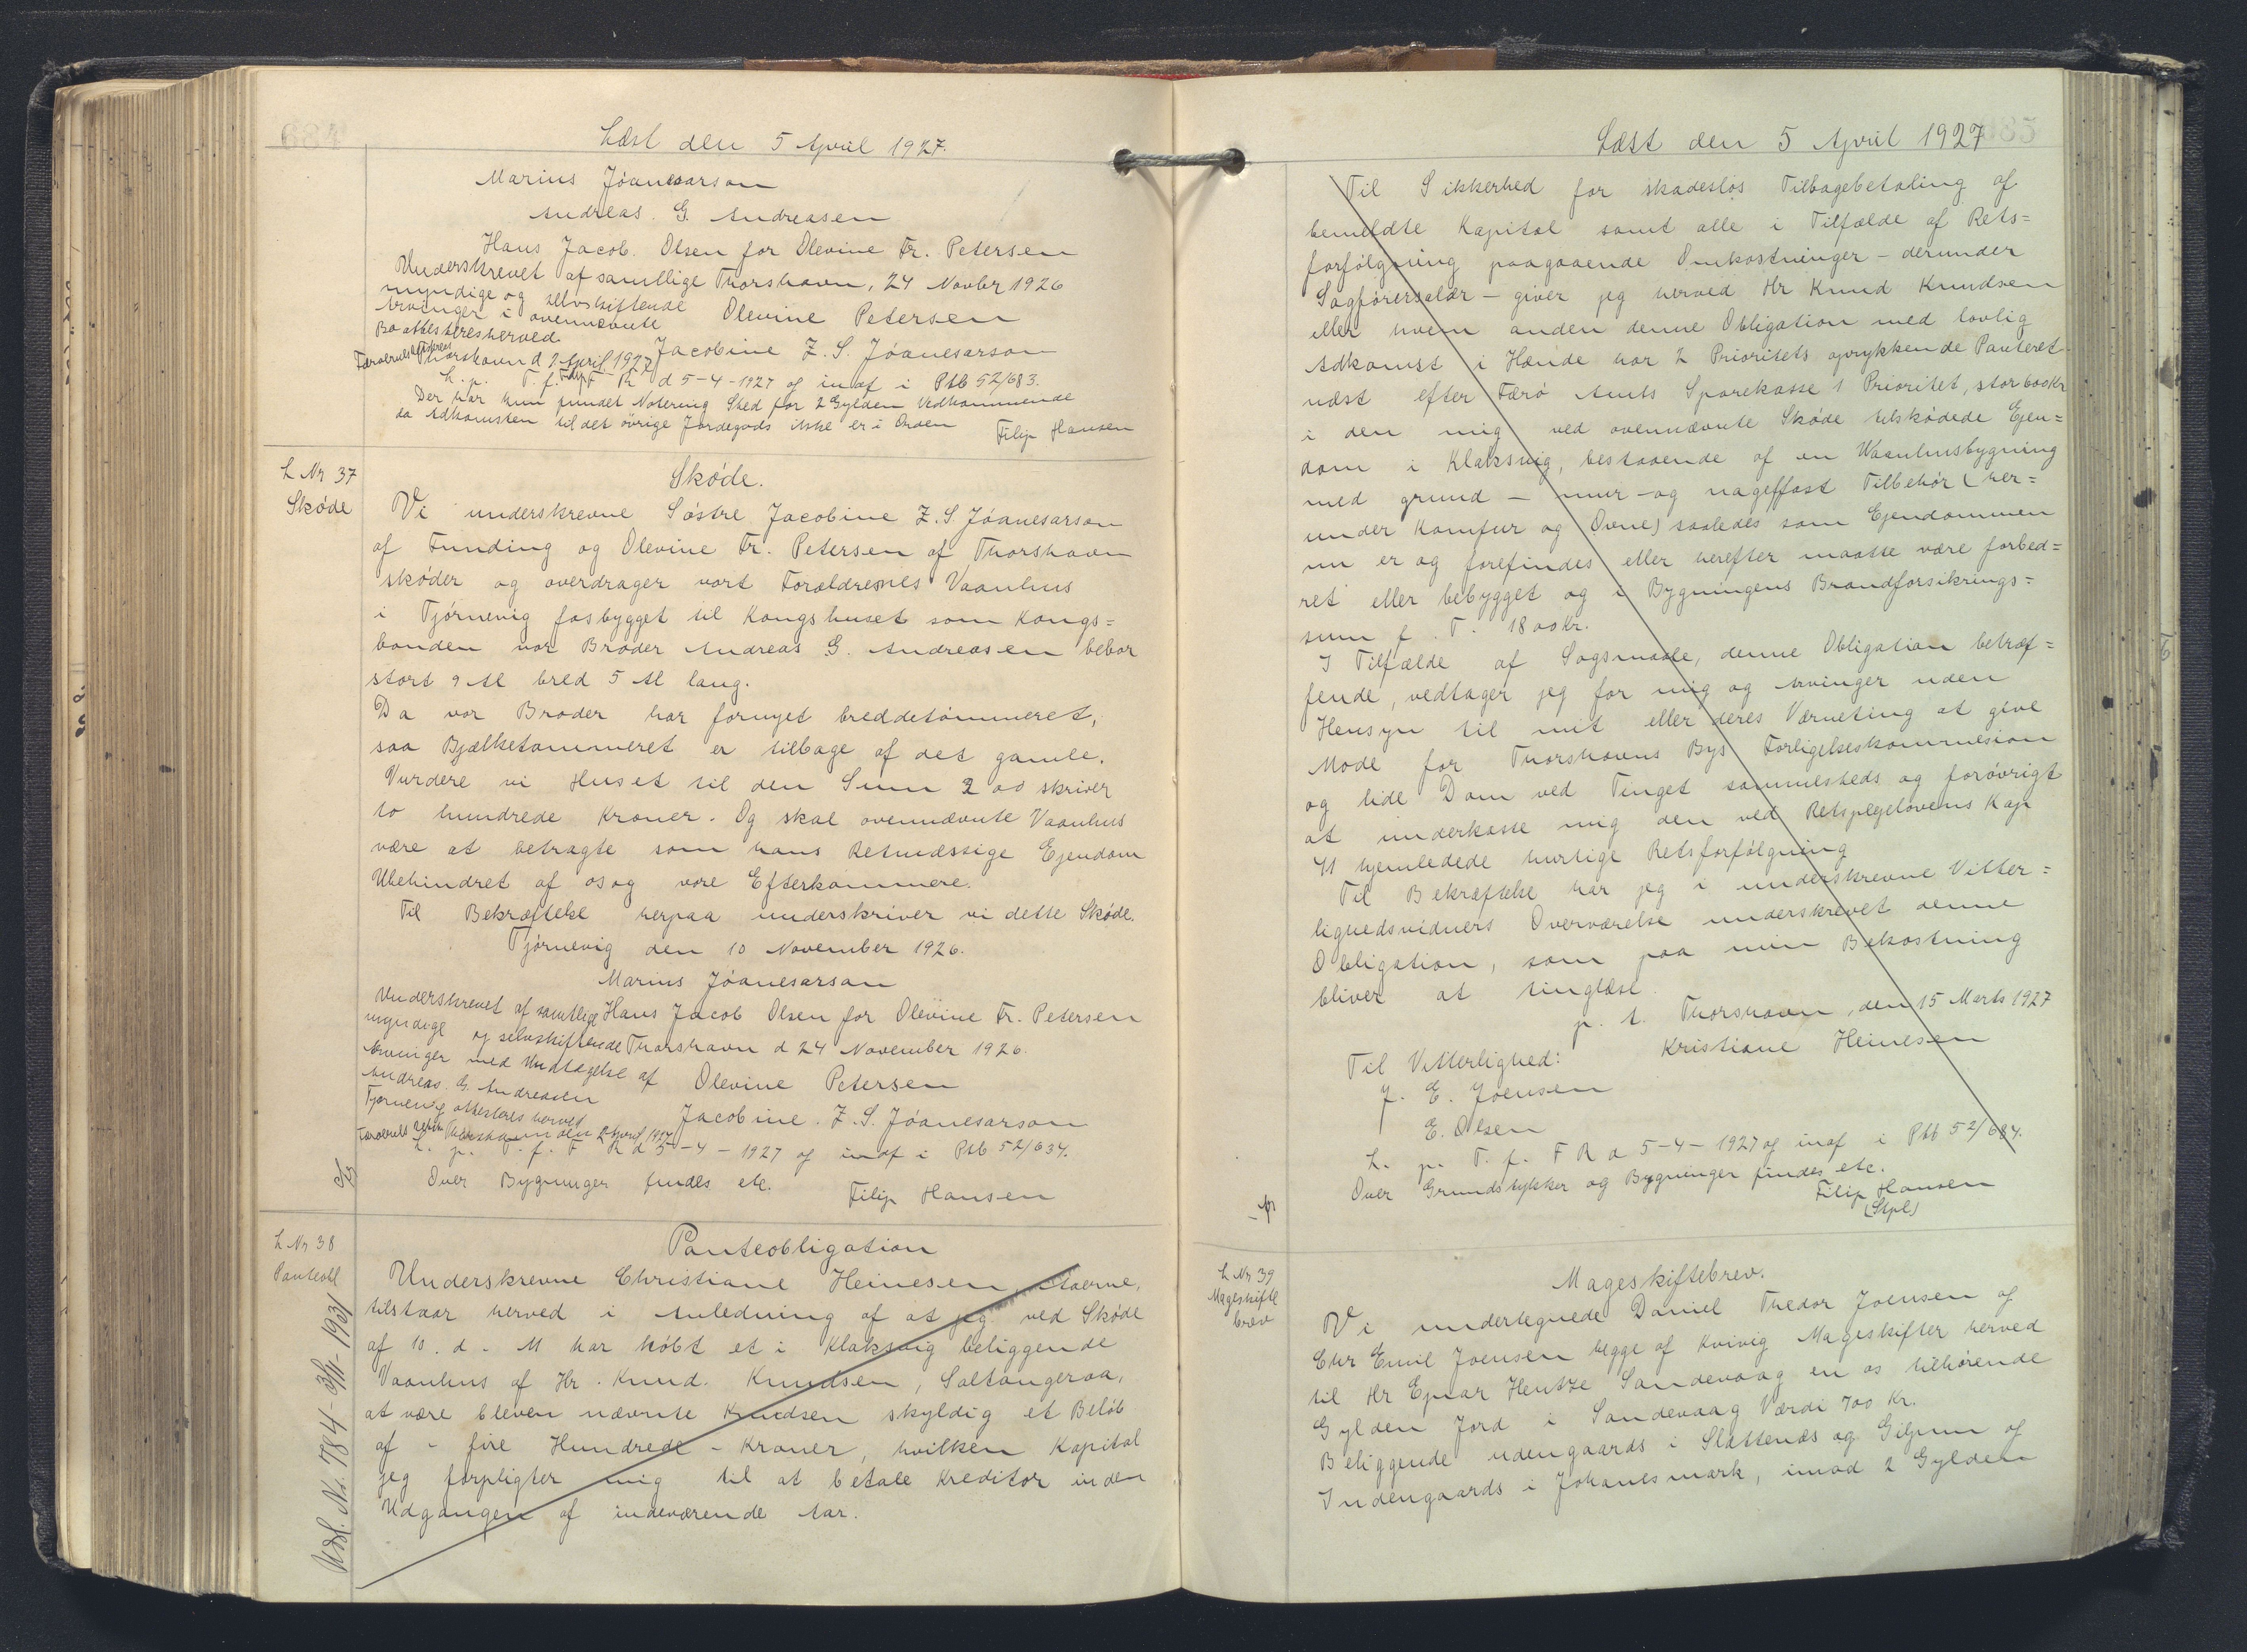 684
Læst den 5 April 1927.
Marius Jóanesarson
Andreas. G. Andreasen
Hans Jacob. Olsen for Olevine Fr. Petersen
Underskrevet af samtlige Thorshavn, 24 Novbr 1926
myndige og selvskiftende
Arvinger i ovennævnte Olevine Petersen
Bo attesteres herved
Jacobine Z. S. Jóanesarson
Thorshavn d 2 April 1927
L. p. T. f. F R d 5-4-1927 og indf i Ptb 52/683.
Der har kun fundet Notering Sted for 2 Gylden Vedkommende
da Adkomsten til det øvrige Jordegods ikke er i Orden Filip Hansen
L Nr 37
Skøde
Skøde.
Vi underskrevne Søstre Jacobine Z. S. Jóanesarson
af Funding og Olevine Fr. Petersen af Thorshavn
skøder og overdrager vort Forældrenes Vaanhus
i Tjørnevig fasbygget til Kongshuset som Kongs=
bonden vor Broder Andreas G. Andreasen bebor
stort 9 Al bred 5 Al lang.
Da vor Broder har fornyet breddetømmeret,
saa Bjælketommeret er tilbage af det gamle.
Vurdere vi Huset til den Sum 200 skriver
to hundrede Kroner. Og skal ovennævnte Vaanhus
være at betragte som hans Retmæssige Ejendom
Ubehindret af os og vore Efterkommere.
Til Bekræftelse herpaa underskriver vi dette Skøde.
Tjørnevig den 10 November 1926.
Marius Jóanesarson
Underskrevet af samtlige Hans Jacob Olsen for Olevine Fr. Petersen
myndige og selvskiftende Thorshavn d 24 November 1926.
Arvinger med Undtagelse af Olevine Petersen
Andreas. G. Andreasen
Tjørnevig attesteres herved Jacobine. Z. S. Jóanesarson
Thorshavn den 2 April 1927
L. p. T. f. F R d 5-4-1927 og indf i Ptb 52/634.
Over Bygninger findes etc. Filip Hansen
L Nr 38
Panteobl
Udsl. Nr. 784-3/11-1931
Panteobligation
Underskrevne Christiane Heinesen,
tilstaar herved i Anledning af at jeg ved Skøde
af 10. d. M har købt et i Klaksvig beliggende
Vaanhus af Hr. Knud. Knudsen, Saltangeraa,
at være bleven nævnte Knudsen skyldig et Beløb
af - fire Hundrede - Kroner, hvilken Kapital
jeg forpligter mig til at betale Kreditor inden
Udgangen af indeværende Aar.
685
Læst den 5 April 1927
Til Sikkerhed for skadesløs Tilbagebetaling af
bemeldte Kapital samt alle i Tilfælde af Rets=
forfølgning paagaaende Omkostninger - derunder
Sagførersalær - giver jeg herved Hr Knud Knudsen
eller hvem anden denne Obligation med lovlig
Adkomst i Hænde har 2 Prioritets oprykkende Panteret
næst efter Færø Amts Sparekasse 1 Prioritet, stor 600 Kr
i den mig ved ovennævnte Skøde tilskødede Ejen=
dom i Klaksvig, bestaaende af en Vaanhusbygning
med grund - mur - og nagelfast Tilbehør (her=
under Komfur og Ovne) saaledes som Ejendommen
nu er og forefindes eller herefter maatte være forbed=
ret eller bebygget og i Bygningens Brandforsikrings=
sum f. T. 1800 Kr.
I Tilfælde af Sagsmaale, denne Obligation betræf=
fende, vedtager jeg for mig og Arvinger uden
Hensyn til mit eller deres Værneting at give
Møde for Thorshavns Bys Forligelseskommission
og lide Dom ved Tinget sammesteds og forøvrigt
at underkaste mig den ved Retsplejelovens Kap
41 hjemledede hurtige Retsforfølgning
Til Bekræftelse har jeg i underskrevne Vitter=
lighedsvidners Overværelse underskrevet denne
Obligation, som paa min Bekostning
bliver at tinglæst.
p. t. Thorshavn, den 15 Marts 1927
Til Vitterlighed: Kristiane Heinesen
J. E. Joensen
E. Olsen
L. p. T. f. F R d 5-4-1927 og indf i Ptb 52/684.
Over Grundstykker og Bygninger findes etc.
Filip Hansen
(Stpl)
L Nr 39
Mageskifte
brev
Mageskiftebrev.
Vi undertegnede Daniel Thedor Joensen og
Chr Emil Joensen begge af Kvivig Mageskifter herved
til Hr Ejnar Hentze Sandevaag en os tilhørende
Gylden Jord i Sandevaag Værdi 700 Kr.
Beliggende udengaards i Slættenæs og Giljum og
Indengaards i Johanesmark, imod 2 Gylden